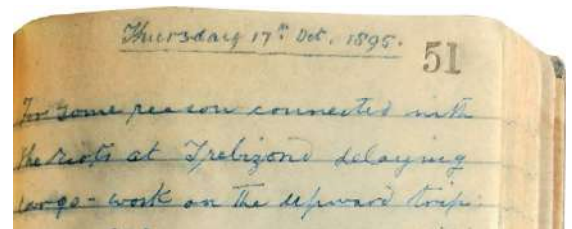 Thursday 17th Oct. 1895.
51
For some reason connected with
the riots at Trebizond delaying
cargo-work on the upward trip.